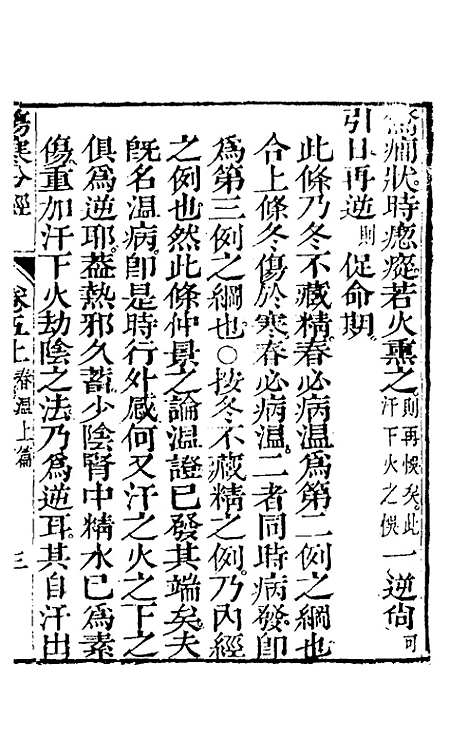 驚癇狀時瘛瘲若火熏之則再悞矣此汗下火之悞一逆尙可
引日再逆則促命期
此條乃冬不藏精春必病溫爲第二例之綱也
合上條冬傷於寒春必病溫二者同時病發卽
爲第三例之綱也○按冬不藏精之例乃內經
之例也然此條仲景之論溫證已發其端矣夫
旣名溫病卽是時行外感何又汗之火之下之
俱爲逆耶蓋熱邪久蓄少陰腎中精水已爲素
傷重加汗下火劫陰之法乃爲逆耳其自汗出
傷寒分經
卷五上
春溫上篇
三